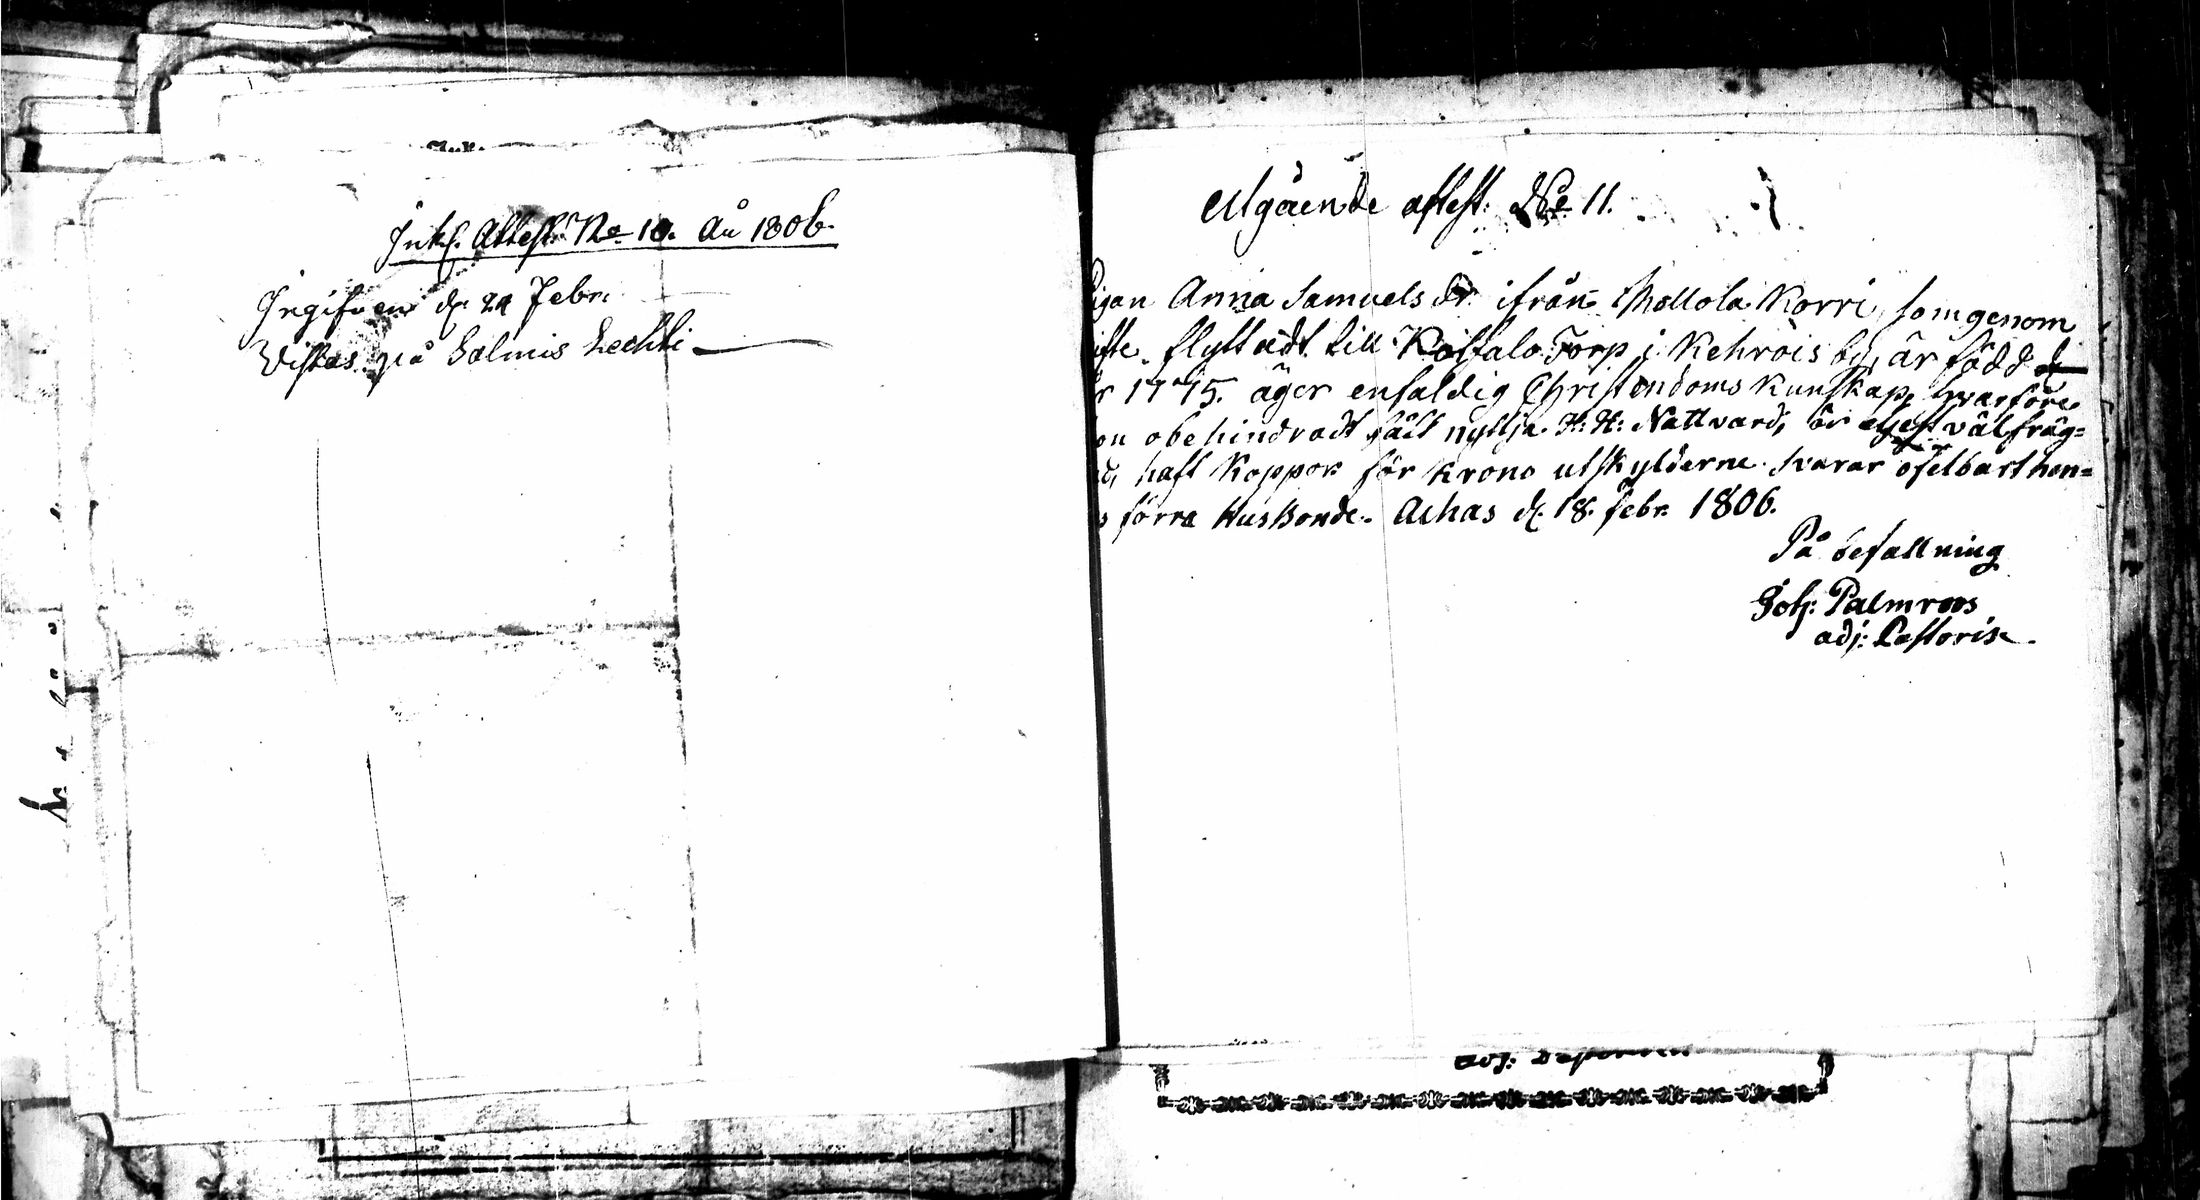 Ink. Attest No 10. Au 1806.
Ingifven d. 24 Febr.
Vistas på Salmis Lechti
Utgående attest. No 11.
Pigan Anna Samuels dr. ifrån Mollola Korri, som genom
gifte flyttadt till Koifalo Torp i Kehrois by, är född
år 1775. äger enfaldig Christendoms Kunskap, hvarföre
hon obehindradt fått nyttja H: H: Nattvard, är eljest välfräg=
ad, haft Koppor för Krono utskylderne svarar ofelbart hen=
s förra Husbonde. Achas d. 18. Febr. 1806.
På befallning
Joh: Palmroos
adj: Pastoris.
adj: